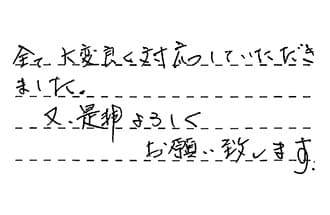 全て大変良く対応していただき
ました。
又、是非よろしく
お願い致します。